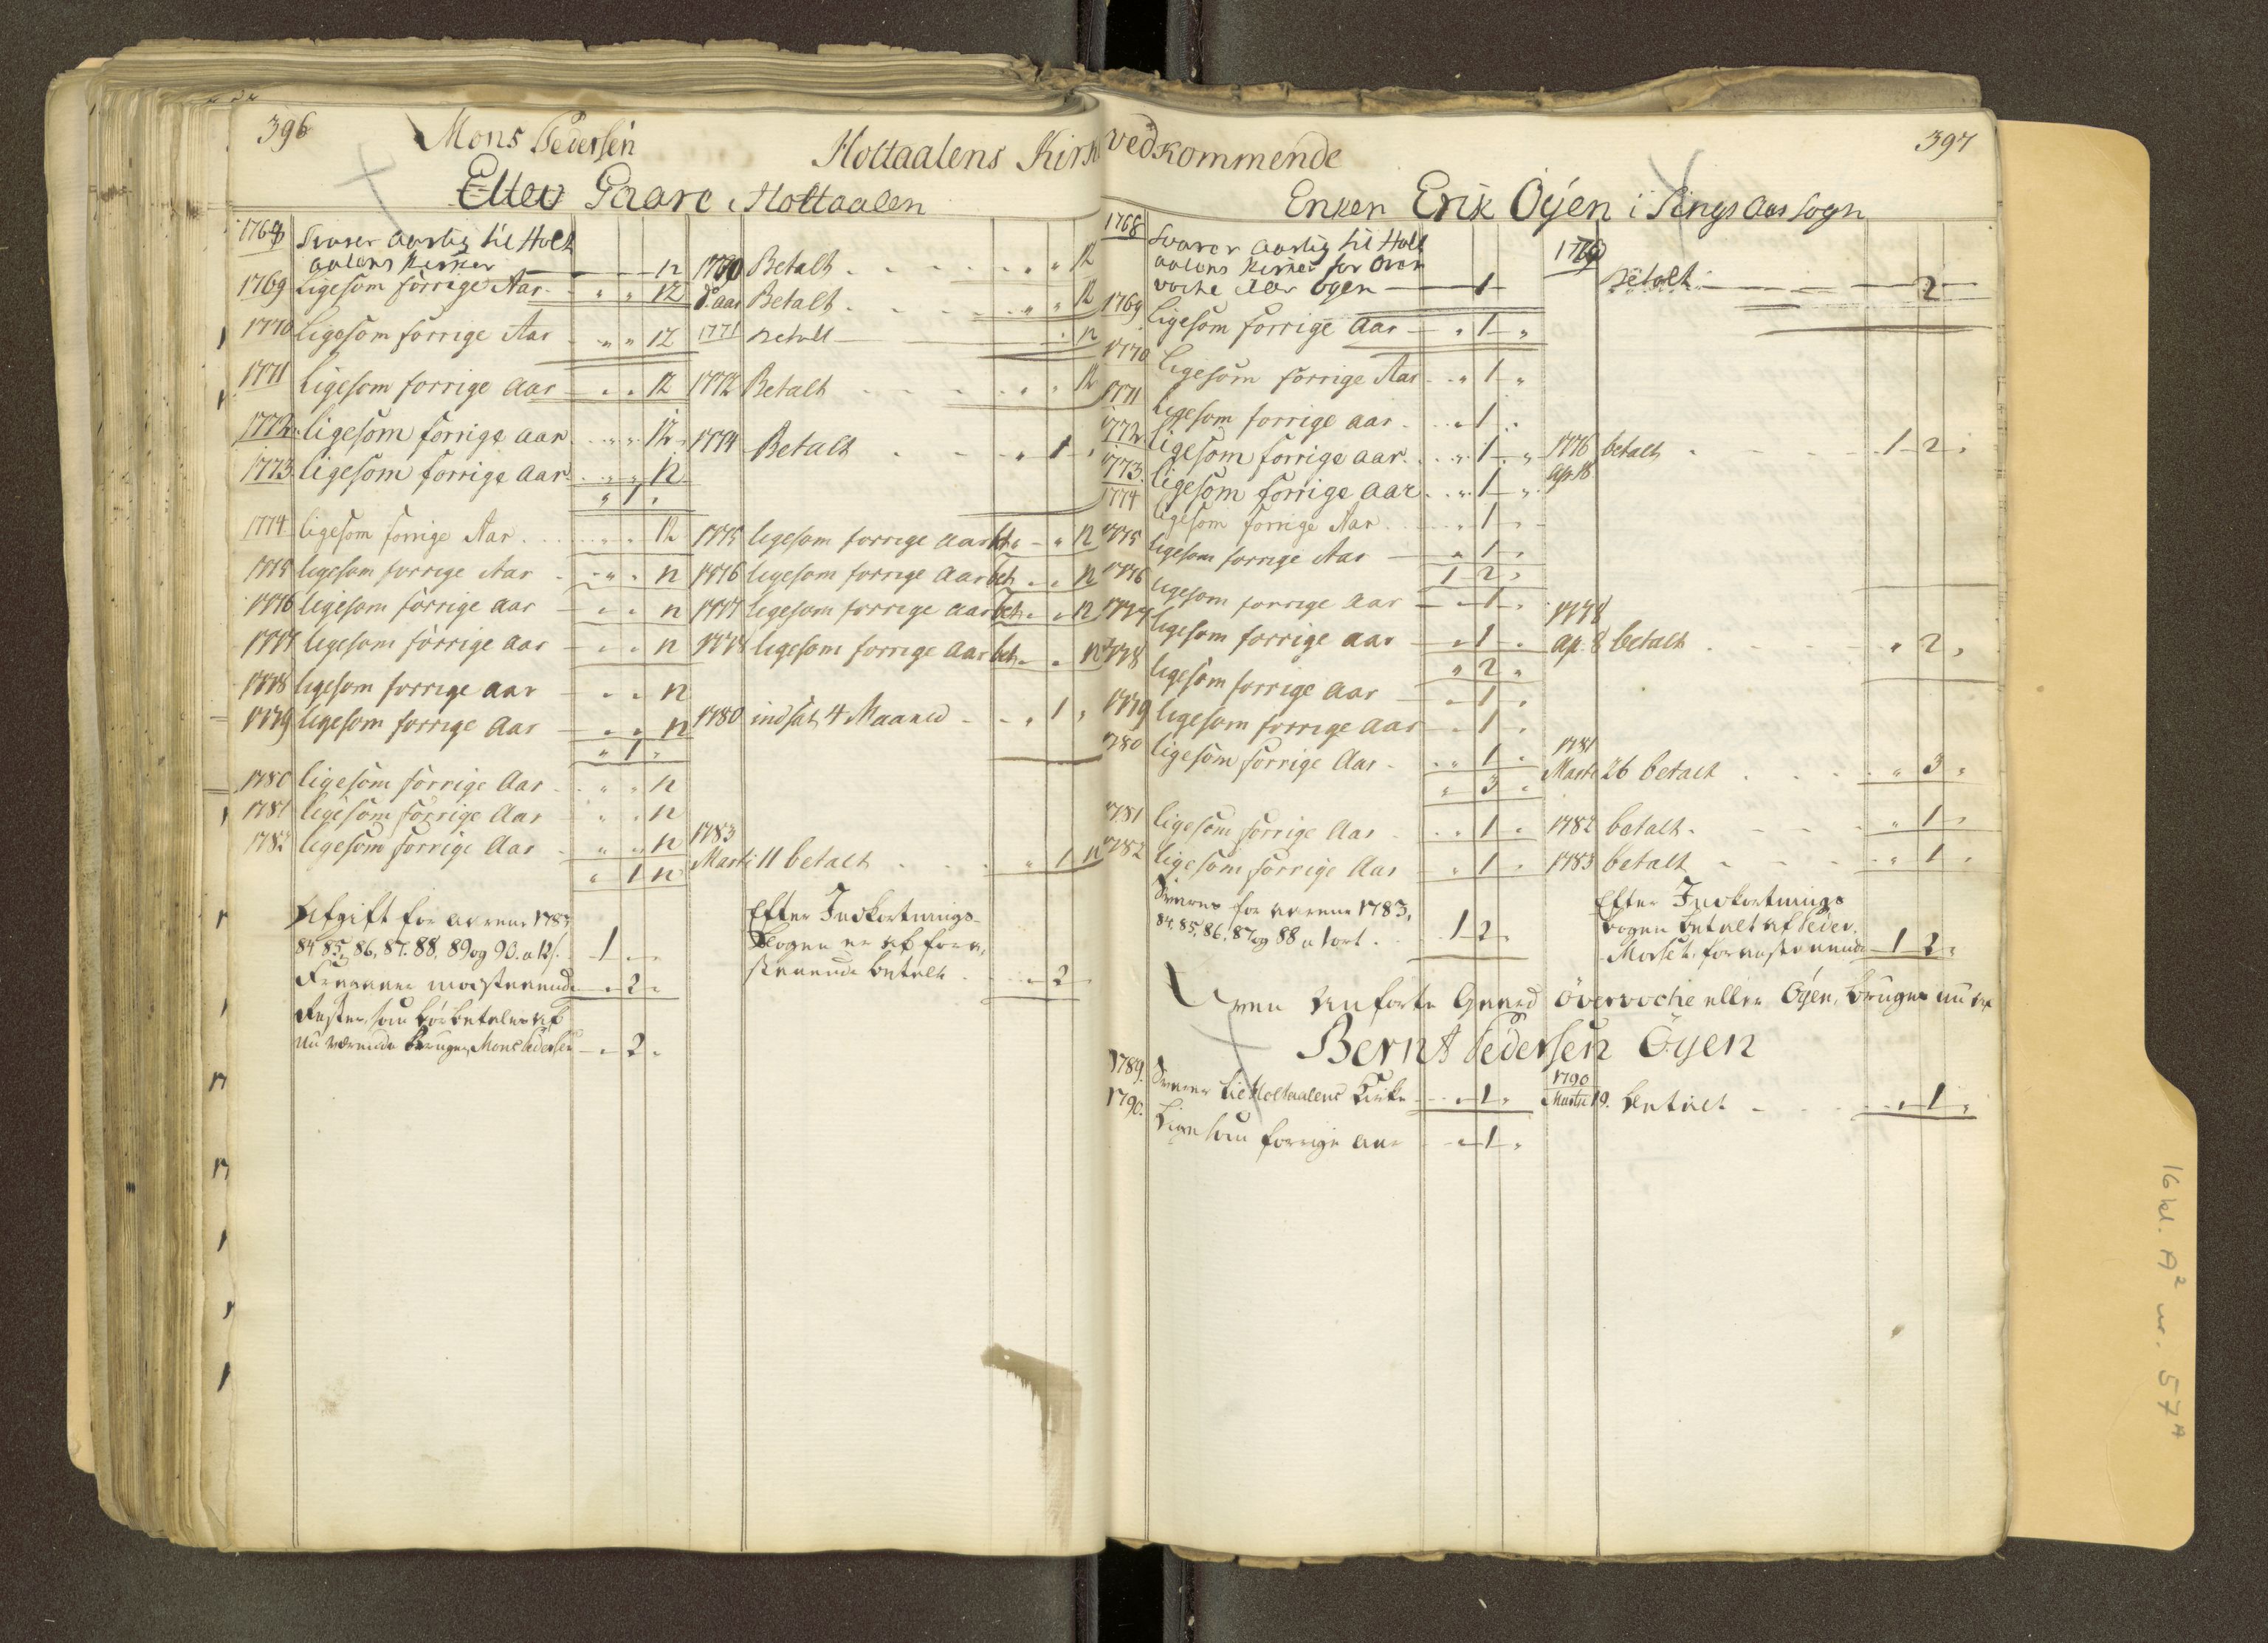 396
Mons Pedersen
Holtaalens Kirk
Ellev Gaare i Holtaalen
1768 Svarer aarlig til Holt
aalens Kirker 12
1769 Ligesom forrige Aar " " 12
1770 Ligesom forrige Aar " " 12
1771 Ligesom forrige Aar " " 12
1772 ligesom forrige Aar " " 12
1773 ligesom forrige Aar " " 12
" 1 "
1774 ligesom forrige Aar " " 12
1775 ligesom forrige Aar " " 12
1776 ligesom forrige Aar " " 12
1777 ligesom forrige Aar " " 12
1778 ligesom forrige Aar " " 12
1779 ligesom forrige Aar " " 12
" 1 "
1780 ligesom forrige Aar " " 12
1781 ligesom forrige Aar " " 12
1782 ligesom forrige Aar " " 12
" 1 12
Afgift for aarene 1783
84. 85. 86. 87. 88. 89 og 90. a 12 s. 1 "
" 2 "
Rester, som bør betales af
nu værende Bruger Mons Pedersen " 2 "
1770 Betalt " " 12
d. aar Betalt " " 12
1771 Betalt " 12
1772 Betalt " " 12
1774 Betalt " 1 "
1775 ligesom forrige Aar bet. " 12
1776 ligesom forrige Aar bet. " 12
1777 ligesom forrige Aar bet. " 12
1778 ligesom forrige Aar bet. " 12
1780 indsat 4 Maaned " 1 "
1783
Marti 11 betalt " 1 12
Efter Indkortnings-
Bogen er af fore-
staaende betalt " 2
vedkommende
397
Enken Erik Öyen i Singsaas Sogn
1768 Svarer aarlig til Holt
aalens Kirker for Over
voche eller Øyen 1
1769 Ligesom forrige Aar " 1 "
1770 Ligesom forrige Aar " 1 "
1771 Ligesom forrige Aar " 1 "
1772 ligesom forrige Aar " 1 "
1773 ligesom forrige Aar " 1 "
1774 ligesom forrige Aar " 1 "
1775 ligesom forrige Aar " 1 "
1 2 "
1776 ligesom forrige Aar " 1 "
1777 ligesom forrige Aar " 1 "
" 2 "
1778 ligesom forrige Aar " 1 "
1779 ligesom forrige Aar " 1 "
1780 ligesom forrige Aar " 1 "
" 3 "
1781 ligesom forrige Aar " 1 "
1782 ligesom forrige Aar " 1 "
Svarer for aarene 1783,
84. 85. 86. 87 og 88 a 1 ort 1 2 "
1769
Betalt 2
1776 betalt 1 2 "
Apr. 18
1778
Ap. 8 betalt " 2 "
1781
Marti 26 betalt " 3 "
1782 betalt " 1 "
1783 betalt " 1 "
Efter Indkortnings
bogen betalt af Peder
Morset forestaaende 1 2 "
oven anførte Gaard Overvoche eller Öyen, bruges nu af
Bernt Pedersen Öyen
1789. Svarer til Holtaalens Kirke " 1 "
1790. Ligesom forrige aar " 1 "
1790
Martii 19. betalt " 1 "
16 kl. A² nr. 57ᴬ